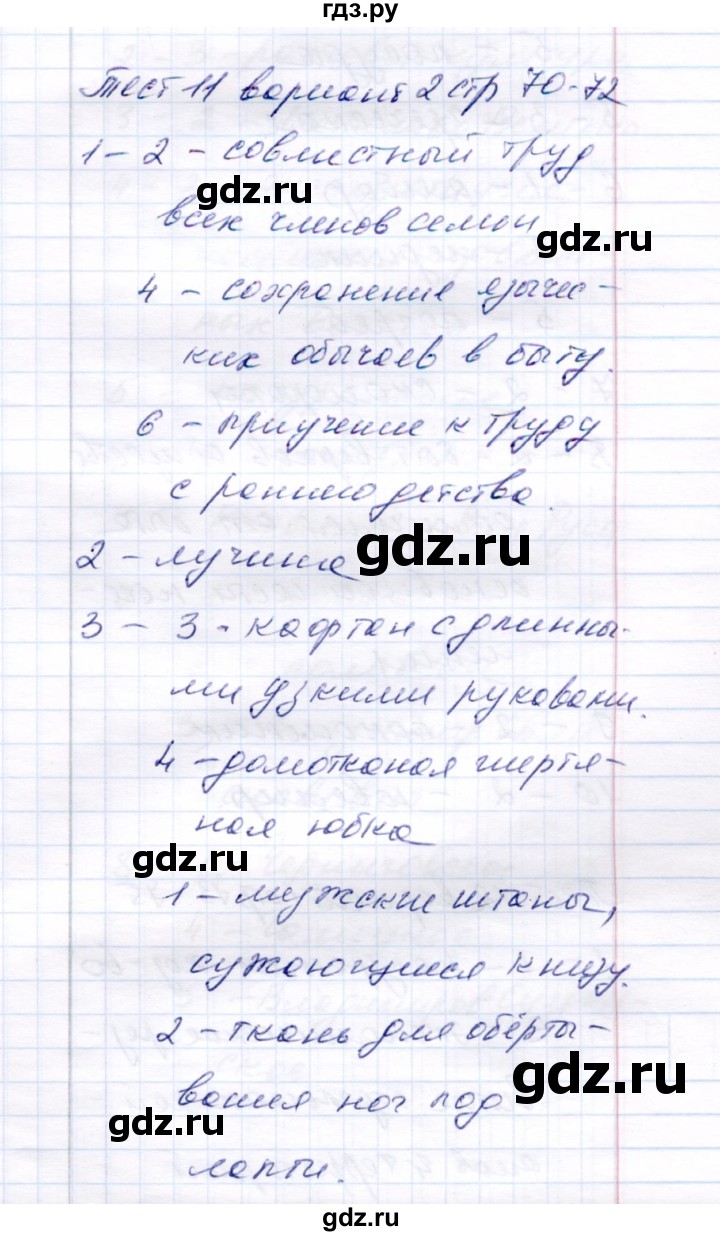 гдз.ру
Тест 11 вариант 2 стр 70-72
1 - 2 - совместный труд
gdz.ru
всех членов семьи
gdz.ru
4 - сохранение язычес-
ких обычаев в быту.
6 - приучение к труду
с раннего детства.
2 - лучина
gdz.ru
3 - 3 - кафтан с длинны-
ми узкими рукавами.
4 - домотканая шерстя-
ная юбка
gdz.ru
1 - мужские штаны,
сужающиеся книзу.
2 - ткань для обёрты-
gdz.ru
вания ног под
gdz.ru
лапти.
gdz.ru